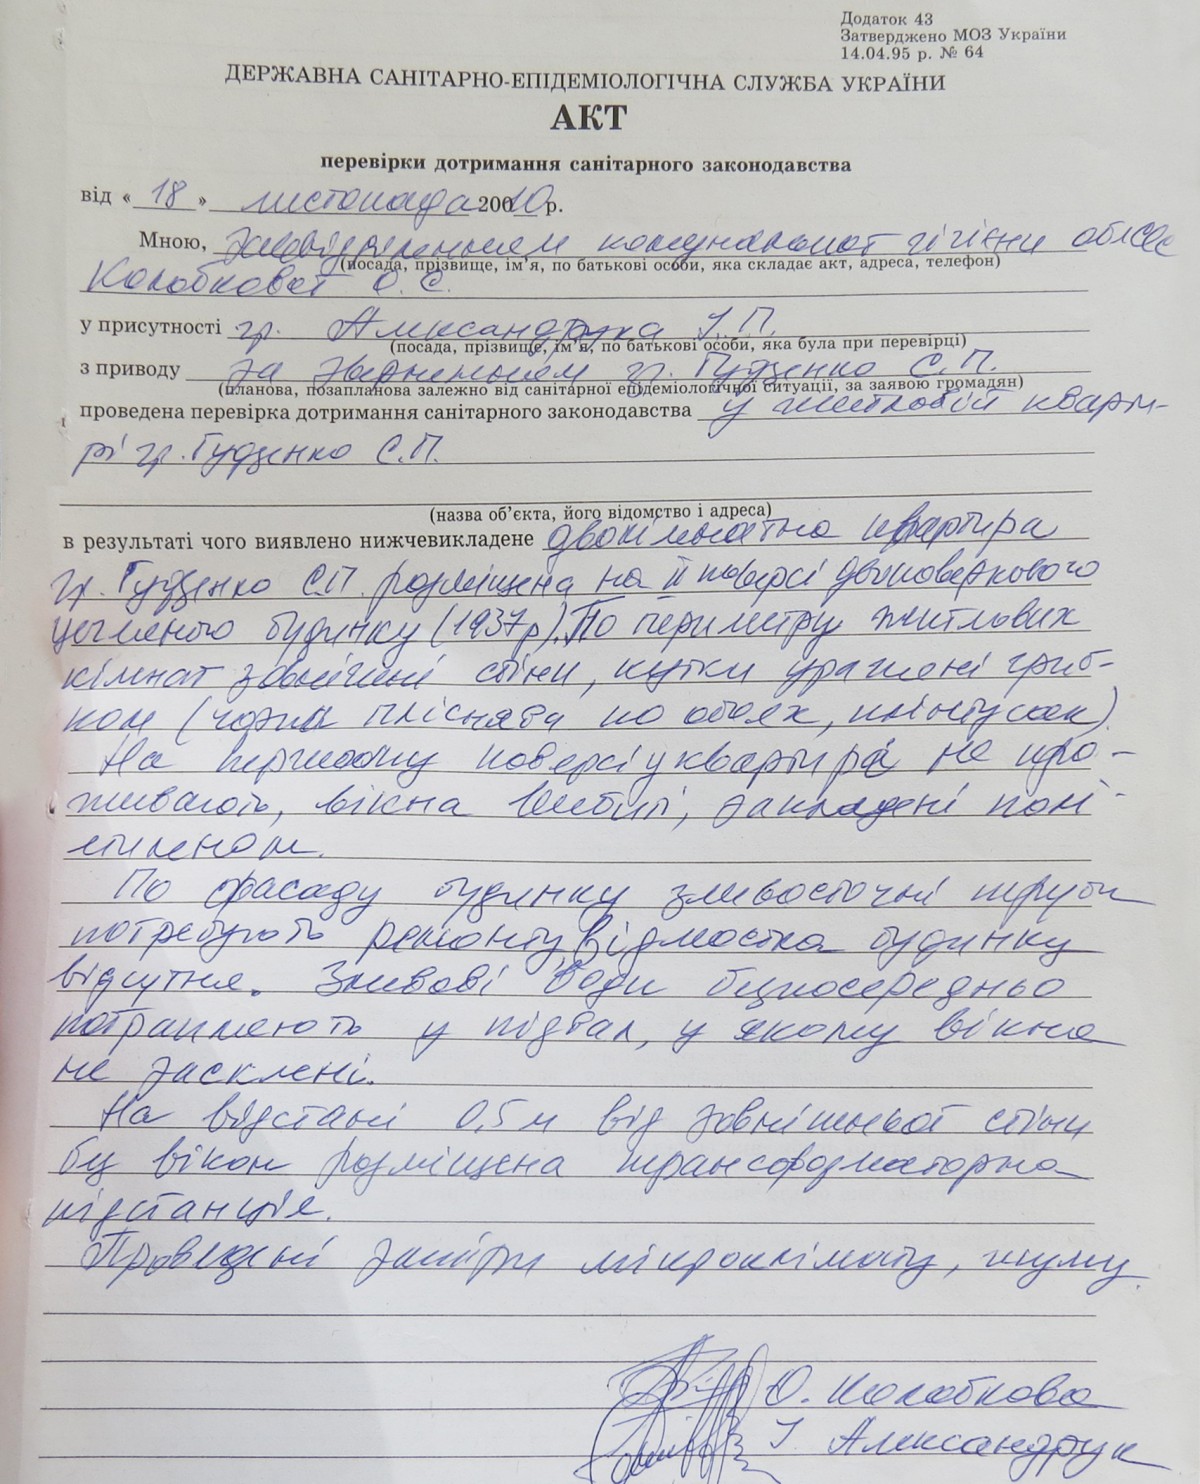 Додаток 43
Затверджено МОЗ України
14.04.95 р. № 64
ДЕРЖАВНА САНІТАРНО-ЕПІДЕМІОЛОГІЧНА СЛУЖБА УКРАЇНИ
АКТ
перевірки дотримання санітарного законодавства
від « 18 » листопада 20010 р.
Мною, завідділенням комунальної гігієни облСЕС
(посада, прізвище, ім’я, по батькові особи, яка складає акт, адреса, телефон)
Колобкової О. С.
у присутності гр. Александрука І. П.
(посада, прізвище, ім’я, по батькові особи, яка була при перевірці)
з приводу за зверненням гр. Гудзенко С. П.
(планова, позапланова залежно від санітарної епідеміологічної ситуації, за заявою громадян)
проведена перевірка дотримання санітарного законодавства у житловій кварти-
рі гр. Гудзенко С.П.
(назва об’єкта, його відомство і адреса)
в результаті чого виявлено нижчевикладене двокімнатна квартира
гр. Гудзенко С.П. розміщена на ІІ поверсі двоповерхового
цегляного будинку (1937р). По периметру житлових
кімнат зовнішні стіни, кутки уражені гриб-
ком (чорна пліснява по обоях, плінтусах).
На першому поверсі у квартирі не про-
живають, вікна вибиті, закладені полі-
етиленом.
По фасаду будинку зливосточні труби
потребують ремонту, відмостка будинку
відсутня. Зливові води безпосередньо
потрапляють у підвал, у якому вікна
не засклені.
На відстані 0,5 м від зовнішньої стіни
без вікон розміщена трансформаторна
підстанція.
Проведені заміри мікроклімату, шуму.
О. Колобкова
І. Александрук